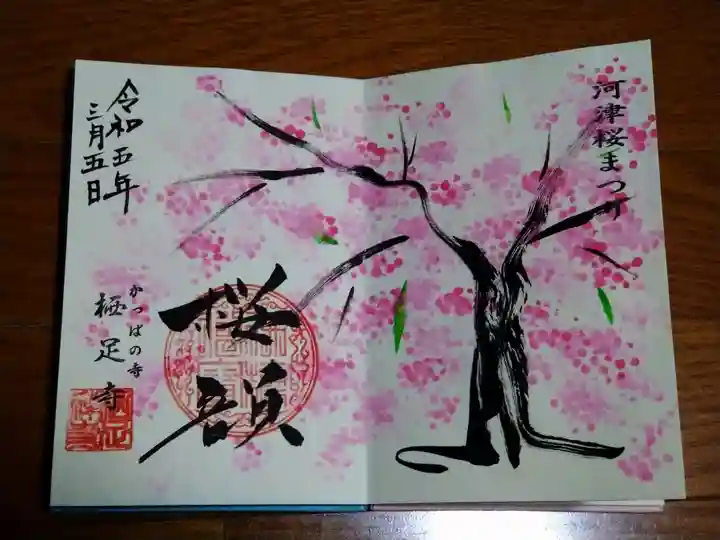 河津桜まつり
桜韻
令和五年
三月五日
かっぱの寺
栖足寺